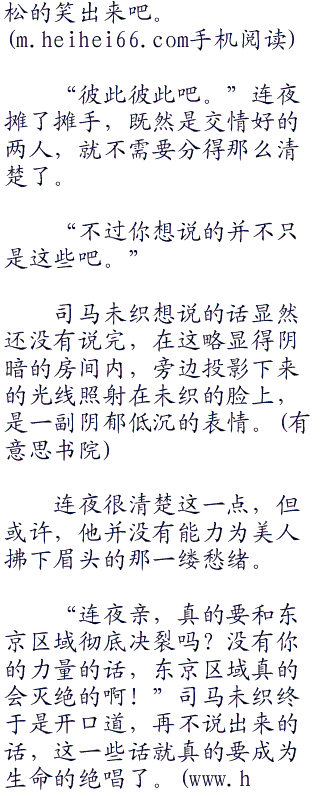 松的笑出来吧。
(m.heihei66.com手机阅读)
“彼此彼此吧。”连夜
摊了摊手，既然是交情好的
两人，就不需要分得那么清
楚了。
“不过你想说的并不只
是这些吧。”
司马未织想说的话显然
还没有说完，在这略显得阴
暗的房间内，旁边投影下来
的光线照射在未织的脸上，
是一副阴郁低沉的表情。(有
意思书院)
连夜很清楚这一点，但
或许，他并没有能力为美人
拂下眉头的那一缕愁绪。
“连夜亲，真的要和东
京区域彻底决裂吗？没有你
的力量的话，东京区域真的
会灭绝的啊！”司马未织终
于是开口道，再不说出来的
话，这一些话就真的要成为
生命的绝唱了。(www.h